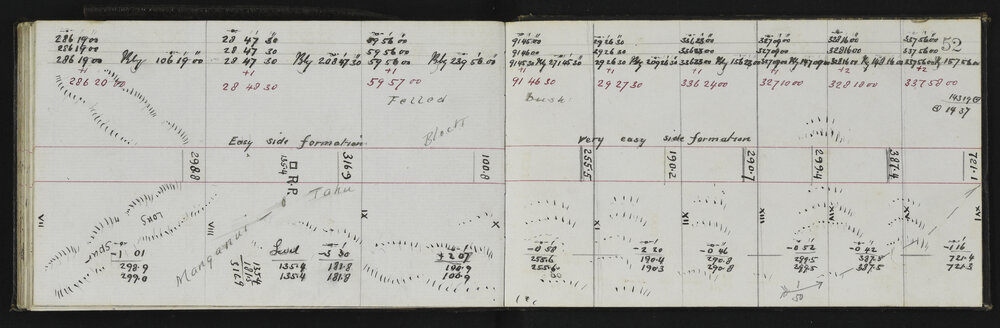 286 19 00
286 19 00
286 19 00 Bly 106 19 00
+1
286 20 00
28 47 30
28 47 30
28 47 30 Bly 208 47 30
+1
28 48 30
59 56 00
59 56 00
59 56 00 Bly 239 56 00
+1
59 57 00
Felled
Block
Easy side formation
298.8
135.4
316.9
100.8
R.P.
Tahu
VII
VIII
IX
X
Long
Spur
Manganui
-1 10
298.9
299.0
135.4
181.5
516.9
Level
135.4
135.4
-3 30
181.8
181.8
+2 01
100.9
100.9
52
91 45 00
91 46 00
91 45 30 Bly 271 45 30
+1
91 46 30
Bush
29 26 30
29 26 30
29 26 30 Bly 209 26 30
+1
29 27 30
336 23 00
336 23 00
336 23 00 Bly 156 23 00
+1
336 24 00
327 09 00
327 09 00
327 09 00 Bly 147 09 00
+1
327 10 00
328 16 00
328 16 00
328 16 00 Bly 148 16 00
+2
328 18 00
337 56 00
337 56 00
337 56 00 Bly 157 56 00
+2
337 58 00
143 19
14 37
very easy side formation
255.5
190.2
290.7
299.4
387.4
721.1
XI
XII
XIII
XIV
XV
XVI
-0 58
255.6
255.6
-2 20
190.4
190.3
-0 46
290.8
290.8
-0 52
299.5
299.5
-0 42
387.5
387.5
-1 16
721.4
721.3
1
50